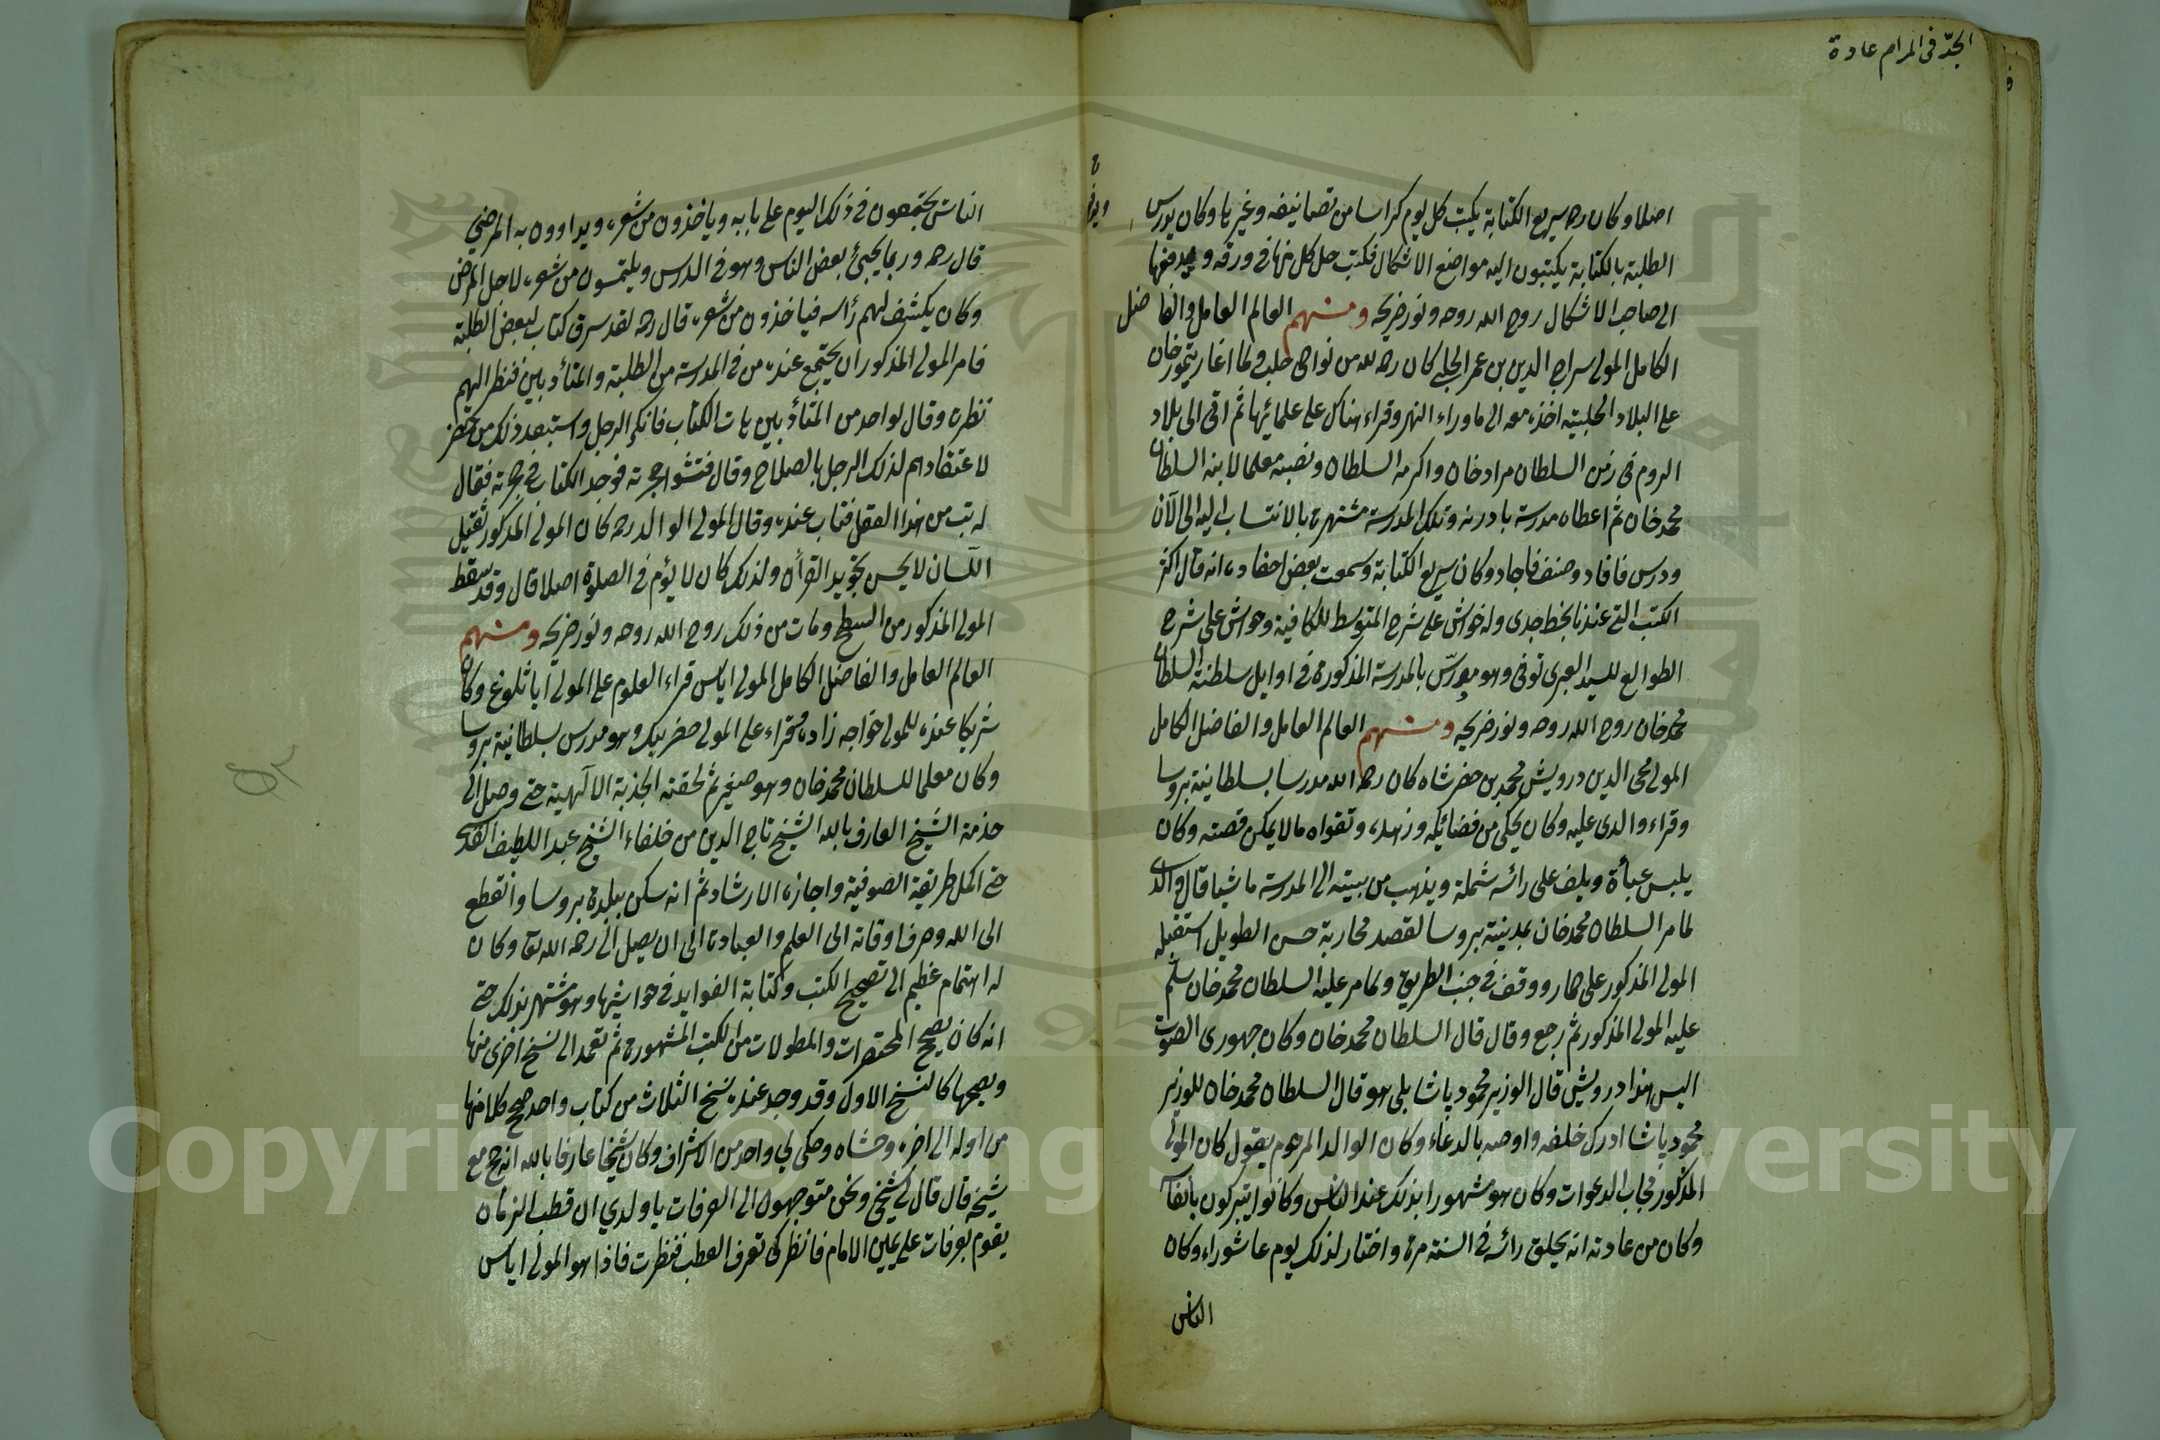 الجدّ فى المرام عادة
اصلا وكان رحمه سريع الكتابة يكتب كل يوم كراسا من تصانيفه وغيرها وكان يدرس
الطلبة بالكتابة يكتبون اليه مواضع الاشكال فكتب حل كل منها فى ورقه و يدفعها
الى صاحب الاشكال روح الله روحه ونور ضريحه ومنهم العالم العامل والفاضل
الكامل المولى سراج الدين بن عمر الحلبى كان رحمه الله من نواحى حلب ولما اغار تيمورخان
على البلاد الحلبية اخذه معه الى ماوراء النهر وقراء هناك على علمائها ثم اتى الى بلاد
الروم فى زمن السلطان مراد خان واكرمه السلطان ونصبه معلما لابنه السلطان
محمد خان ثم اعطاه مدرسة بادرنه وتلك المدرسة مشتهرة بالانتساب اليه الى الآن
ودرس فافاد وصنف فاجاد وكان سريع الكتابة وسمعت بعض احفاده انه قال اكثر
الكتب التى عندنا بخط جدى وله حواش على شرح المتوسط للكافية وحواش على شرح
الطوالع للسيد العبرى توفى وهو مدرّس بالمدرسة المذكورة فى اوايل سلطنة السلطان
محمد خان روح الله روحه ونور ضريحه ومنهم العالم العامل والفاضل الكامل
المولى محى الدين درويش محمد بن خضر شاه كان رحمه الله مدرسا بسلطانية بروسا
وقراء والدى عليه وكان يحكى من فضائله وزهده وتقواه ما لا يمكن قصته وكان
يلبس عبأة ويلف على رائسه شملة ويذهب من بيته الى المدرسة ماشيا قال والدى
لما مر السلطان محمد خان بمدينة بروسا لقصد محاربة حسن الطويل استقبله
المولى المذكور على حمار ووقف فى جنب الطريق ولما مر عليه السلطان محمد خان سلم
عليه المولى المذكور ثم رجع وقال قال السلطان محمد خان وكان جهورى الصوت
اليس هذا درويش قال الوزير محمود پاشا بلى هو قال السلطان محمد خان للوزير
محمود پاشا ادرك خلفه واوصه بالدعاء وكان الوالد المرحوم يقول كان المولى
المذكور مجاب الدعوات وكان هو مشهورا بذلك عند الناس وكانوا يتبركون بانفاسه
وكان من عادته انه يحلق رائسه فى السنة مرة واختار لذلك يوم عاشوراء وكان
الناس
الناس يجتمعون فى ذلك اليوم على بابه وياخذون من شعره ويداوون به المرضى
قال رحمه وربما يجيئ بعض الناس وهو فى الدرس ويلتمسون من شعره لاجل المرض
وكان يكشف لهم رأسه فياخذون من شعره قال رحمه لقد سرق كتاب لبعض الطلبة
فامر المولى المذكور ان يجتمع عنده من فى المدرسة من الطلبة والمتأدبين فنظر اليهم
نظرة وقال لواحد من المتأدبين هات الكتاب فانكر الرجل واستبعد ذلك من حضر
لاعتقادهم لذلك الرجل بالصلاح وقال فتشوا حجرته فوجد الكتاب فى حجرته فقال
له تب من هذا الفعل فتاب عنده وقال المولى الوالد رحمه كان المولى المذكور ثقيل
اللسان لا يحسن تجويد القرأن ولذلك كان لا يؤم فى الصلوة اصلا قال وقد سقط
المولى المذكور من السطح ومات من ذلك روح الله روحه ونور ضريحه ومنهم
العالم العامل والفاضل الكامل المولى اياس قراء العلوم على المولى اياثلوغ وكان
شريكا عنده للمولى خواجه زاده وقراء على المولى خضر بيك وهو مدرس بسلطانية بروسا
وكان معلما للسلطان محمد خان وهو صغير ثم لحقته الجذبة الالهية حتى وصل الى
خدمة الشيخ العارف بالله الشيخ تاج الدين من خلفاء الشيخ عبد اللطيف القدسى
حتى اكمل طريقة الصوفية واجازه الارشاد ثم انه سكن ببلدة بروسا وانقطع
الى الله وصرف اوقاته الى العلم والعبادة الى ان يصل الى رحمة الله تعا وكان
له اهتمام عظيم الى تصحيح الكتب وكتابة الفوايد فى حواشيها وهو مشتهر بذلك حتى
انه كان يصحح المختصرات والمطولات من الكتب المشهورة ثم تعمد الى نسخ اخرى منها
ويصححها كالنسخ الاول وقد وجد عنده نسخ الثلاث من كتاب واحد صحح كلا منها
من اوله الى اخره وحشاه وحكى لي واحد من الاشراف وكان شيخا عارفا بالله انه حج مع
شيخه قال قال لى شيخى ونحن متوجهون الى العرفات يا ولدي ان قطب الزمان
يقوم بعرفات على يمين الامام فانظر كى تعرف القطب فنظرت فاذا هو المولى اياس
Copyright © King Saud University